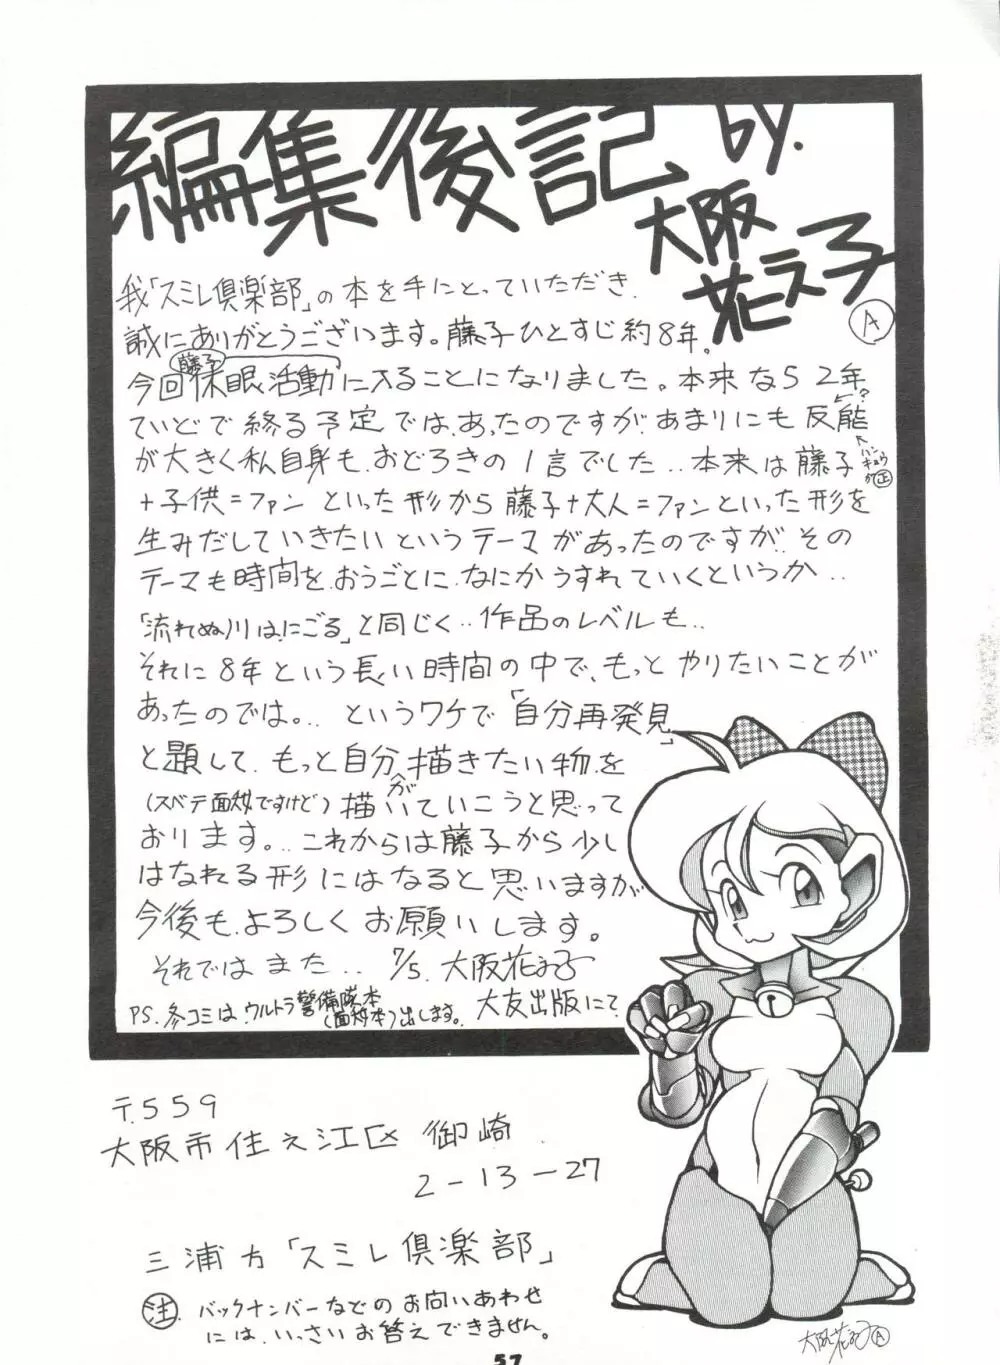 編集後記 by.
大阪
花え子
A
我「スミレ倶楽部」の本を手にとっていただき.
誠にありがとうございます。藤子ひとすじ約8年。
藤子
今回休眠活動に入ることになりました。本来なら2年
ていどで終る予定では、あったのですが、あまりにも反能
←?
ハンキョウが正
が大きく私自身も、おどろきの1言でした..本来は藤子
+子供=ファンといった形から藤子+大人=ファンといった形を
生みだしていきたいというテーマがあったのですが、その
テーマも時間を、おうごとに、なにかうすれていくというか..
「流れぬ川は、にごる」と同じく..作品のレベルも..
それに8年という長い時間の中で、もっとやりたいことが
あったのでは。.. というワケで「自分再発見」
と題して、もっと自分が描きたい物を
(スベテ面妖ですけど)描いていこうと思って
おります。..これからは藤子から少し
はなれる形にはなると思いますが
今後も、よろしくお願いします。
それではまた.. 7/5. 大阪花え子
大友出版にて
PS. 冬コミは、ウルトラ警備隊本(面妖本)出します。
〒559
大阪市住之江区御崎
2-13-27
三浦方「スミレ倶楽部」
注. バックナンバーなどのお問いあわせ
には、いっさいお答えできません。
大阪花え子A
57